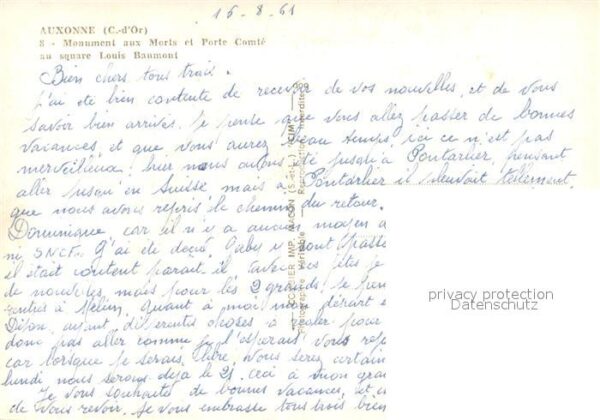 15.8.61
AUXONNE (C.-d'Or)
8 - Monument aux Morts et Porte Comté
au square Louis Baumont
Bien chers tous trois.
J'ai été bien contente de recevoir de vos nouvelles, et de vous
savoir bien arrivés. Je pense que vous allez passer de bonnes
vacances, et que vous aurez beau temps, ici ce n'est pas
merveilleux! hier nous avons été jusqu'à Pontarlier, pensant
aller jusqu'en Suisse, mais à Pontarlier il pleuvait tellement,
que nous avons repris le chemin du retour.
Dominique, car il n'y a aucun moyen
ni SNCF. J'ai été Gaby y sont passé
il était content paraît-il, avec je
de nouvelles, mais pour les 2 grands, je pen
rentrés à Melun, quant à moi, mon départ
Dijon, ayant différentes choses à régler pour
donc pas aller comme je l'espérais vous
car lorsque je serais libre, vous serez certain
lundi nous serons déjà le 21, ceci à mon gran
Je vous souhaite de bonnes vacances, et
de vous revoir, je vous embrasse tous trois bien
COMBIER IMP. MACON (S.-et-L.) "CIM"
Photographie véritable — Reproduction interdite
privacy protection
Datenschutz